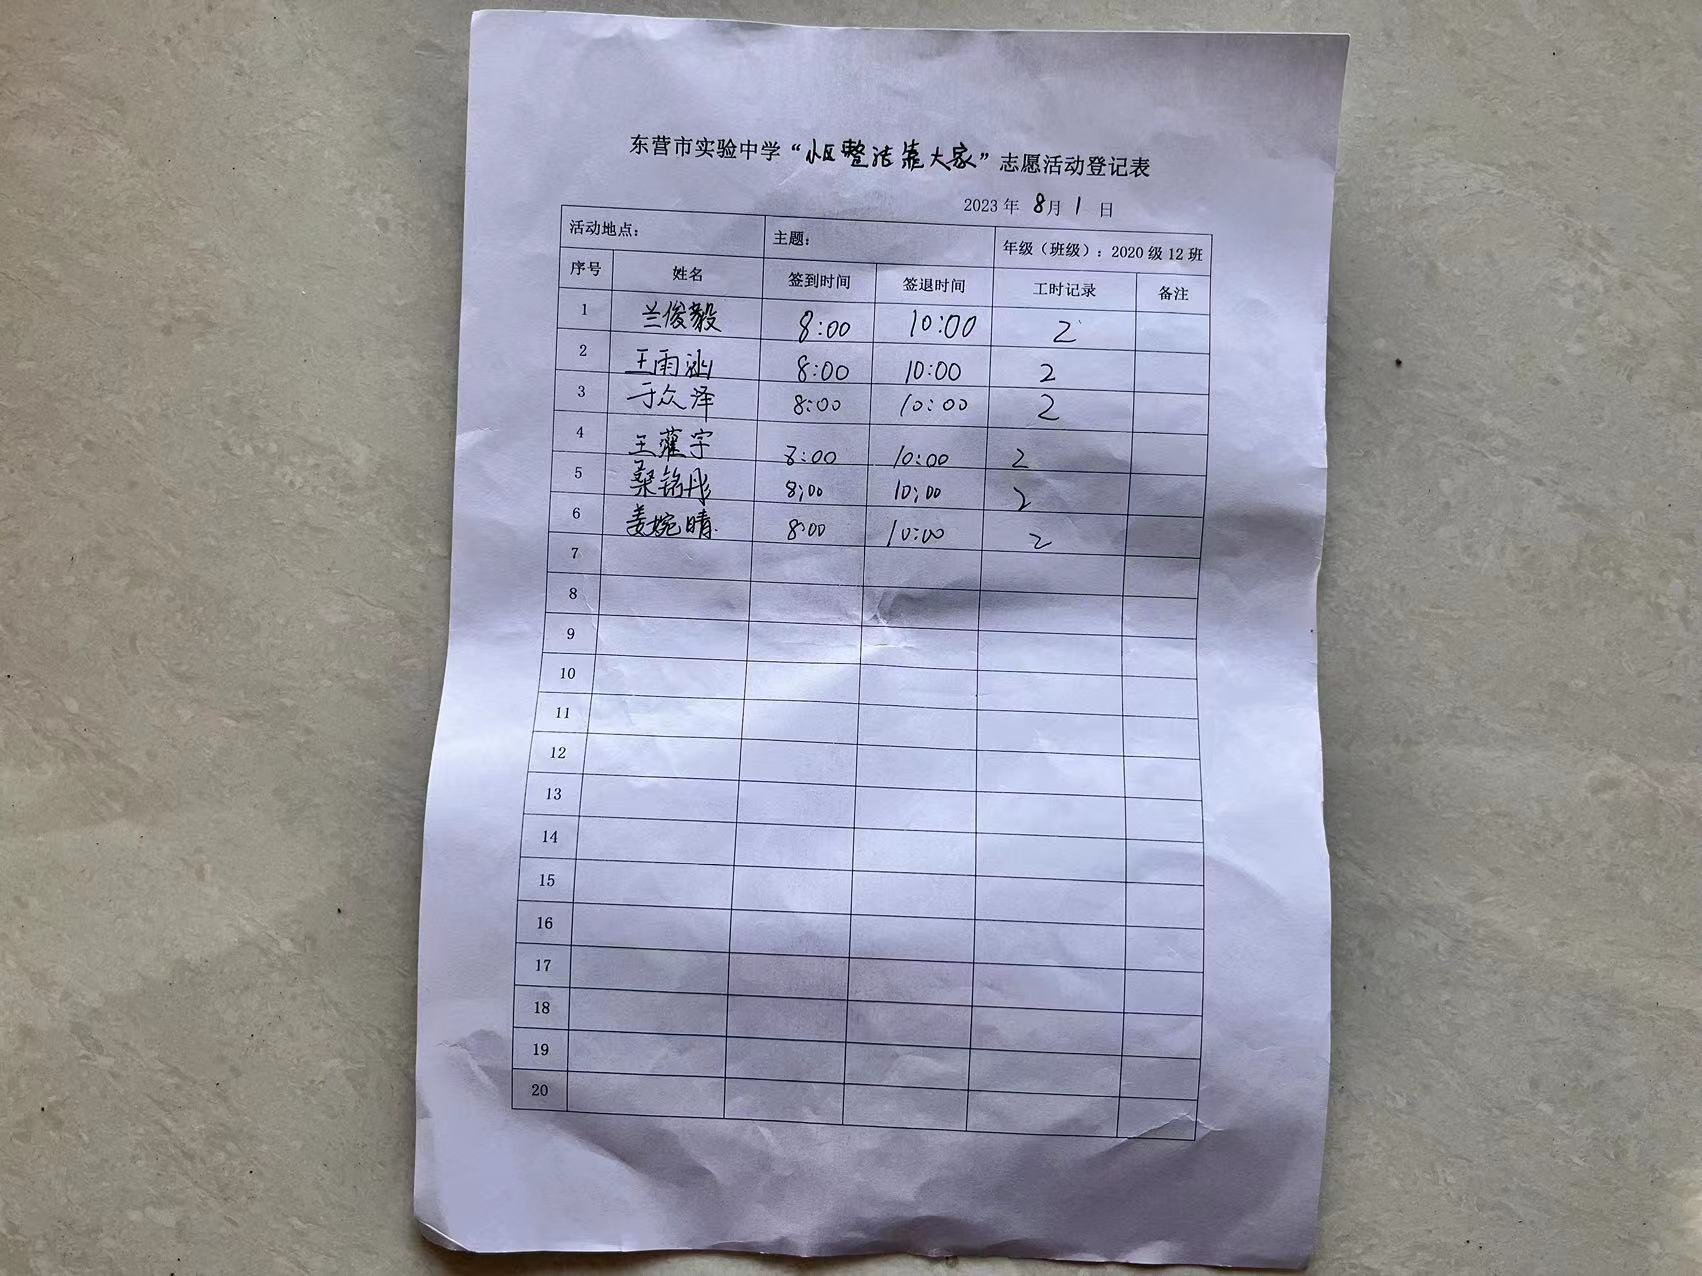 东营市实验中学“小区整洁靠大家”志愿活动登记表
2023 年 8月 1 日
活动地点： 主题： 年级（班级）：2020 级 12 班
序号 姓名 签到时间 签退时间 工时记录 备注
1 兰俊毅 8:00 10:00 2
2 王雨 8:00 10:00 2
3 于众泽 8:00 10:00 2
4 王 宇 8:00 10:00 2
5 桑铭彤 8:00 10:00 2
6 姜婉晴 8:00 10:00 2
7
8
9
10
11
12
13
14
15
16
17
18
19
20